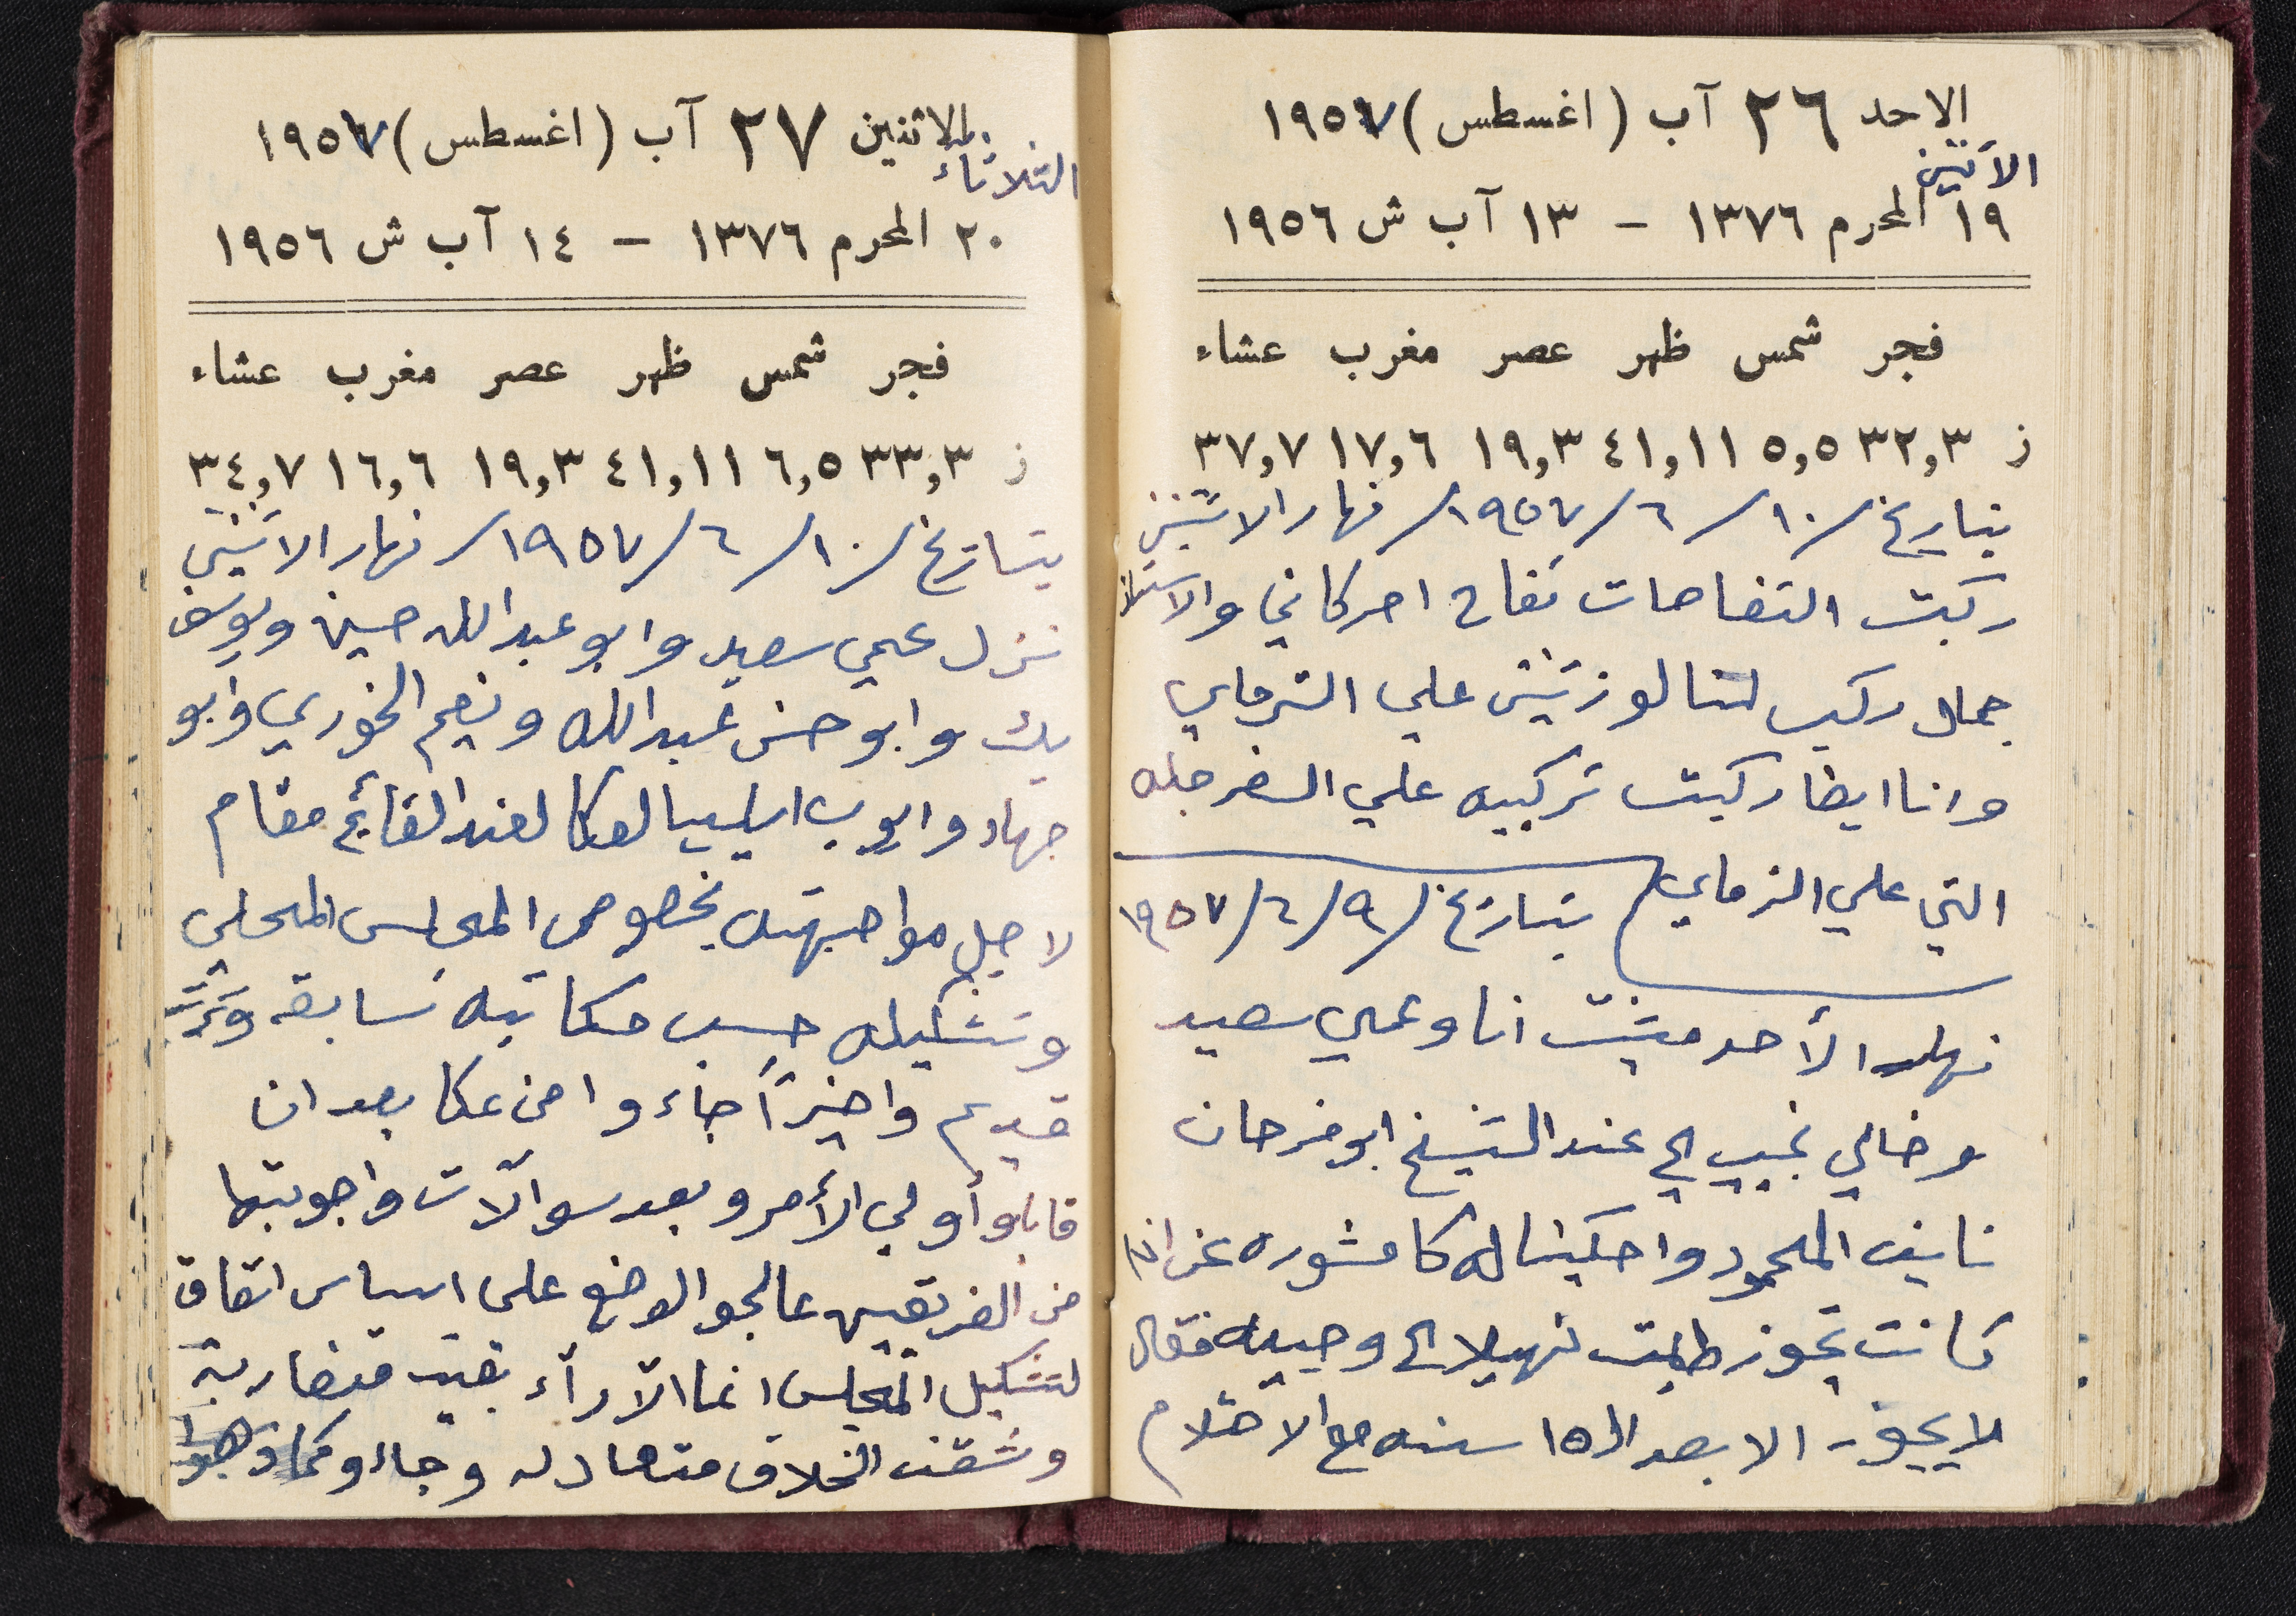 الاحد ٢٦ آب (اغسطس) ١٩٥٧
الاثنين
١٩ المحرم ١٣٧٦ – ١٣ آب ش ١٩٥٦
فجر شمس ظهر عصر مغرب عشاء
ز ٣٢,٣ ٥,٥ ٤١,١١ ١٩,٣ ١٧,٦ ٣٧,٧
بتاريخ /١٠/٦/١٩٥٧/ نهار الاثنين
ركبت التفاحات تفاح امركاني والاستاذ
جمال ركب لنا لوزتين على الزماي
وانا ايضا ركبت تركيبه علي السفرجله
التي علي الزماي بتاريخ /٩/٦/١٩٥٧
نهار الأحد مشيت انا وعمي سعيد
وخالي نجيب الي عند الشيخ ابو فرحان
نايف المحمود واحكينا له كا مشوره عن اذا
كانت تجوز طلبت نهيلا الي وجيه فقال
لا يجوز الا بعد ال١٥ سنه مع الاحتلام
الاثنين ٢٧ آب (اغسطس) ١٩٥٧
الثلاثاء
٢٠ المحرم ١٣٧٦ – ١٤ آب ش ١٩٥٦
فجر شمس ظهر عصر مغرب عشاء
ز ٣٣,٣ ٦,٥ ٤١,١١ ١٩,٣ ١٦,٦ ٣٤,٧
بتاريخ /١٠/٦/١٩٥٧/ نهار الاثنين
نزل عمي سعيد وابو عبدالله حسين ويوسف
بك وابو حسن عبدالله ونعيم الخوري وابو
جهاد وايوب ايليا لعكا لعند القائم مقام
لاجل مواجهته بخصوص المجلس المحلي
وتشكيله حسب مكاتبه سابقه
قديم واخيراً جاءوا من عكا بعد ان
قابلو أولي الأمر وبعد سوالات واجوبتها
من الفريقين عالجو الوضع على اساس اتفاق
لتشكيل المجلس انما الآراء بقيت متضاربة
وشقت الخلاف متعادله وجاءو كما ذهبوا